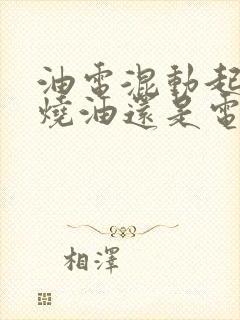 油電混動起
燒油還是電
相澤